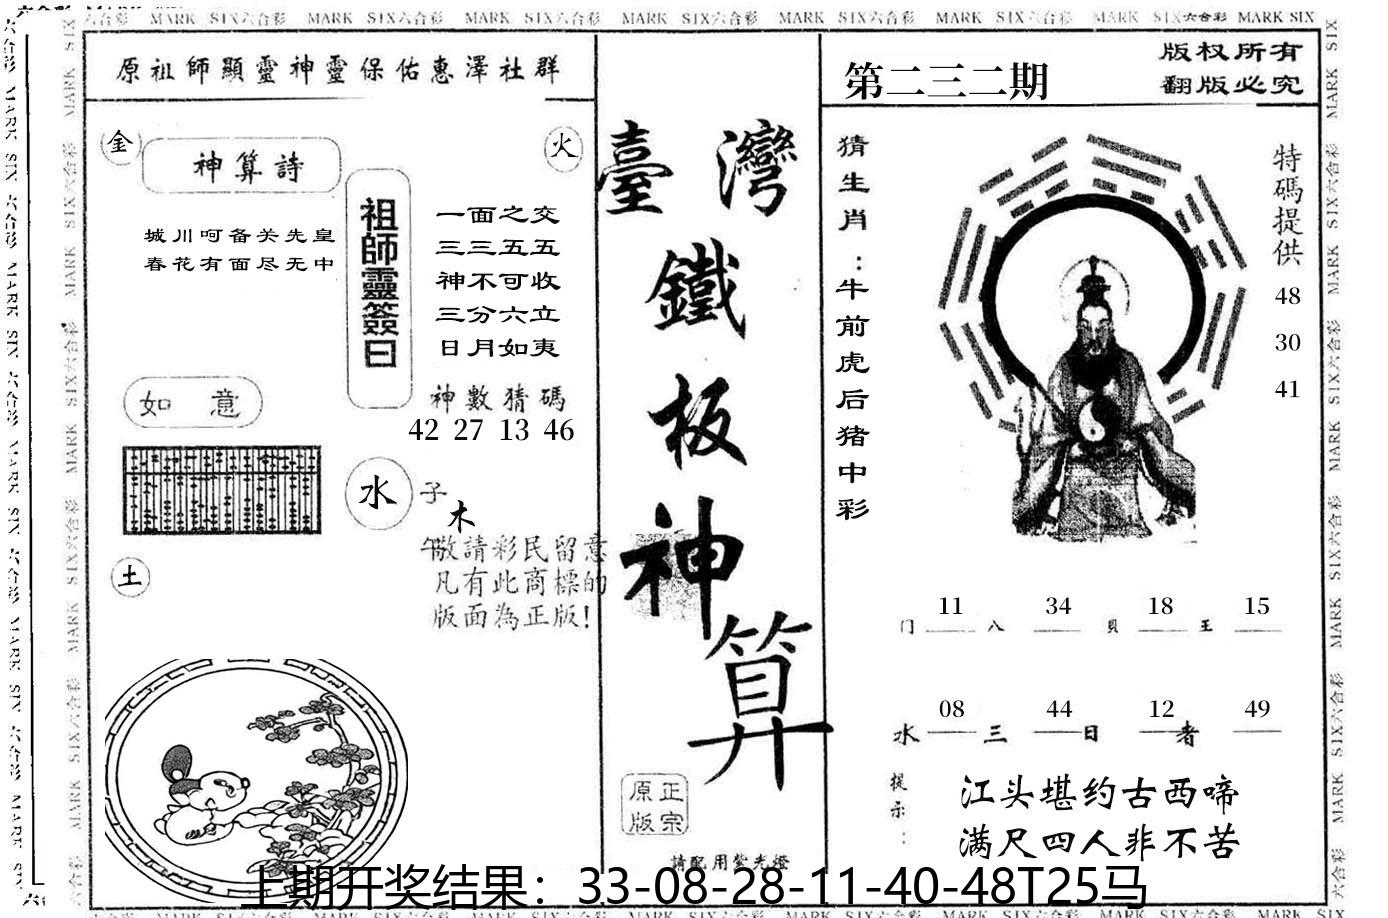 MARK SIX六合彩 MARK SIX六合彩 MARK SIX六合彩 MARK SIX六合彩 MARK SIX六合彩 MARK SIX六合彩 MARK SIX六合彩 MARK SIX
原祖師顯靈神靈保佑惠澤社群
金
神算詩
火
城川呵备关先皇
春花有面尽无中
祖師靈簽曰
一面之交
三三五五
神不可收
三分六立
日月如夷
神數猜碼
42 27 13 46
如 意
水
子
木
午
土
敬請彩民留意
凡有此商標的
版面為正版!
臺灣
鐵
板
神
算
原正
版宗
請配用紫光燈
第二三二期
版权所有
翻版必究
猜生肖:牛前虎后猪中彩
特碼提供
48
30
41
11 34 18 15
门 八 貝 王
08 44 12 49
水 三 日 者
提示:
江头堪约古西啼
满尺四人非不苦
上期开奖结果：33-08-28-11-40-48T25马